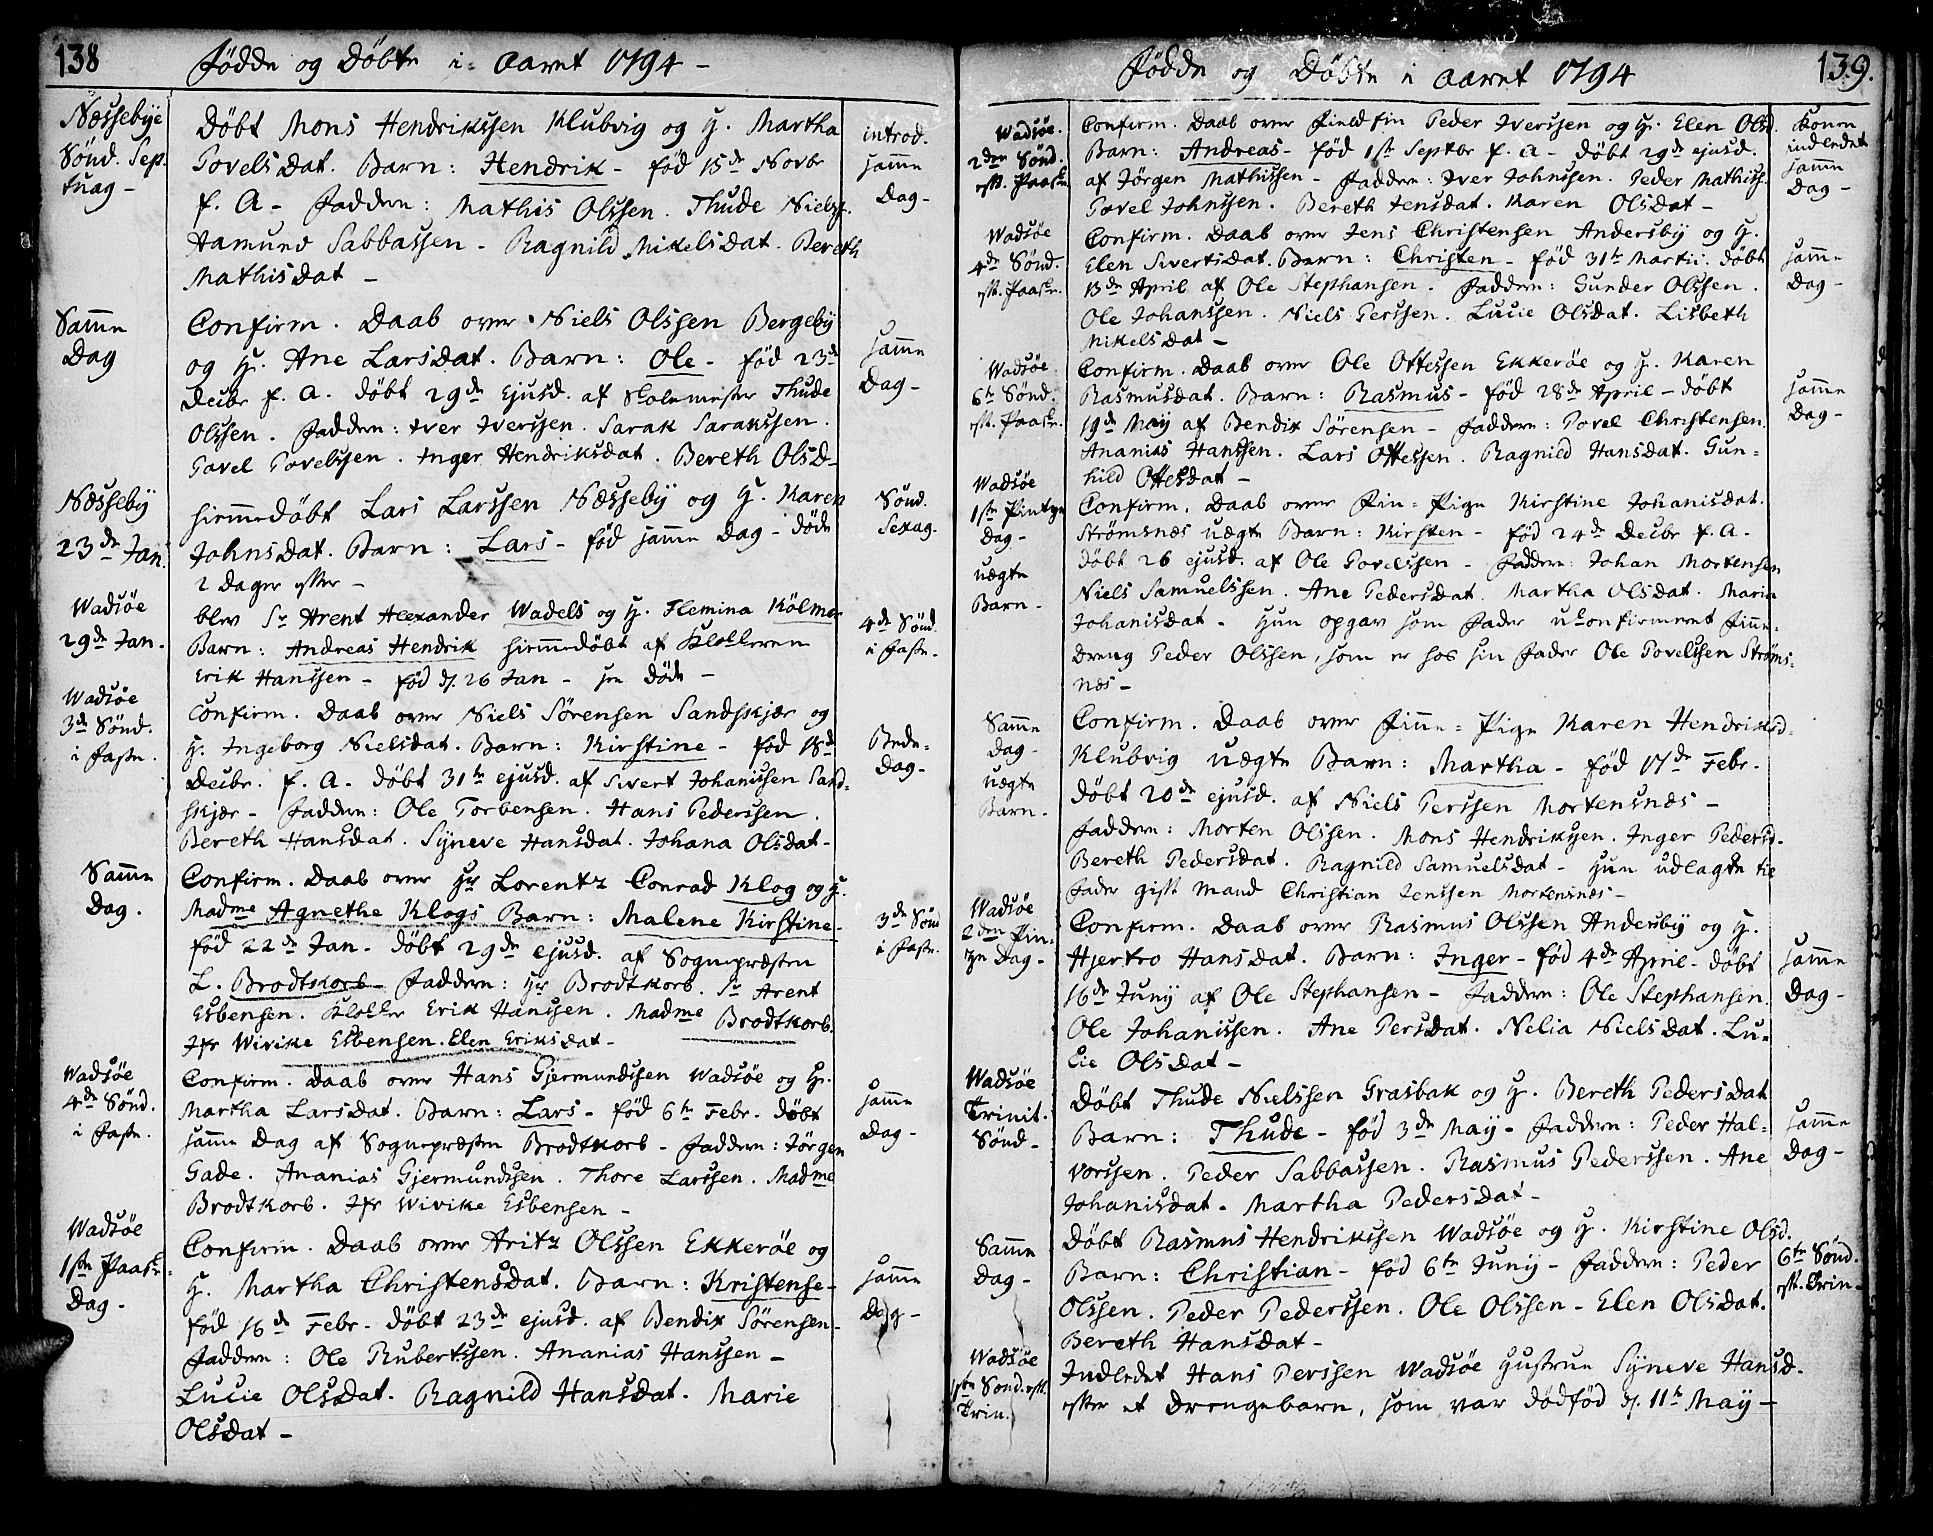 138
Fødde og Døbte i Aaret 1794 -
Næssebye
Sønd. Sep-
tuag -
Døbt Mons Hendrikssen Klubvig og H. Martha
Povelsdat. Barn: Hendrik - fød 15de Novbr
f. A - Faddere: Mathis Olssen. Thude Nielss.
Hamund Sabbassen - Ragnild Mikelsdat. Bereth
Mathisdat -
introd.
samme
Dag -
Samme
Dag
Confirm. Daab over Niels Olssen Bergeby
og H. Ane Larsdat. Barn: Ole - fød 23de
Decbr f. A. døbt 29de Ejusd. af Skolemester Thude
Olssen. Faddere: Iver Iverssen. Sarak Sarakssen.
Povel Povelssen. Inger Hendriksdat. Bereth Olsd -
samme
Dag -
Næsseby
23de Jan.
hiemmedøbt Lars Larssen Næsseby og H. Karen
Johnsdat. Barn: Lars - fød samme Dag - døde
2 Dager efter -
Sønd.
Sexag.
Wadsöe
29de Jan.
blev Sr Arent Alexander Wadels og H. Flemina Kölmer
Barn: Andreas Hendrik hiemmedøbt af Klokkeren
Erik Hanssen - fød d. 26 Jan - døde -
4de Sønd.
i Faste.
Wadsöe
3de Sønd.
i Faste.
Confirm. Daab over Niels Sörensen Sandskjær og
H. Ingeborg Nielsdat. Barn: Kirstine - fød 18de
Decbr. f. A - døbt 31te ejusd. af Sivert Johanissen Sand-
skjær - Faddere: Ole Torbensen. Hans Pederssen.
Bereth Hansdat. Syneve Hansdat. Johana Olsdat -
Bede-
Dag -
Samme
Dag.
Confirm. Daab over Hr Lorentz Conrad Klog og H.
Madme Agnethe Klogs Barn: Malene Kirstine -
fød 22de Jan - døbt 29de ejusd. af Sognepræsten
L. Brodtkorb - Faddere: Hr Brodtkorb. Sr Arent
Esbensen. Klokker Erik Hanssen. Madme Brodtkorb.
Jfr Wivike Esbensen. Elen Eriksdat -
3de Sønd
i Faste.
Wadsöe
4de Sønd.
i Faste.
Confirm. Daab over Hans Gjermundssen Wadsöe og H.
Martha Larsdat. Barn: Lars - fød 6te Febr. døbt
samme Dag af Sognepræsten Brodtkorb - Faddere: Jörgen
Gade. Ananias Gjermundssen. Thore Larssen. Madme
Brodtkorb. Jfr Wivike Esbensen -
samme
Dag -
Wadsöe
1ste Paaske-
Dag -
Confirm. Daab over Aritz Olssen Ekkeröe og
H. Martha Christensdat. Barn: Kristense -
fød 16de Febr - døbt 23de ejusd. af Bendix Sörensen -
Faddere: Ole Rubertssen. Ananias Hanssen -
Lucie Olsdat. Ragnild Hansdat. Marie
Olsdat -
samme
Dag -
139.
Fødde og Døbte i Aaret 1794
Wadsöe.
2den Sønd.
eft. Paaske
Confirm. Daab over Fieldfin Peder Iverssen og H. Elen Olsd.
Barn: Andreas - fød 1ste Septbr f. A - døbt 29de ejusd.
af Jörgen Mathissen - Faddere: Iver Johnssen. Peder Mathiss.
Povel Johnssen. Bereth Jensdat. Karen Olsdat -
Konen
indledet
samme
Dag -
Wadsöe
4de Sønd.
eft. Paaske.
Confirm. Daab over Jens Christensen Andersby og H.
Elen Sivertsdat. Barn: Christen - fød 31te Martii. døbt
13de April af Ole Stephansen. Faddere: Gunder Olssen.
Ole Johanssen. Niels Perssen. Lucie Olsdat. Lisbeth
Mikelsdat -
samme
Dag -
Wadsöe
6te Sønd.
eft. Paaske.
Confirm. Daab over Ole Ottessen Ekkeröe og H. Karen
Rasmusdat. Barn: Rasmus - fød 28de April - døbt
19de May af Bendix Sörensen - Faddere: Povel Christensen.
Ananias Hanssen. Lars Ottessen. Ragnild Hansdat. Gun-
hild Ottesdat -
samme
Dag -
Wadsöe
1ste Pintze
Dag -
uægte
Barn -
Confirm. Daab over Fin-Pige Kirstine Johanisdat.
Strömsnæs uægte Barn: Kirsten - fød 24de Decbr f. A -
døbt 26 ejusd. af Ole Povelssen - Faddere: Johan Mortensen
Niels Samuelssen. Ane Pedersdat. Martha Olsdat. Maria
Johanisdat - Hun opgav som Fader uconfirmeret Finne-
dreng Peder Olssen, som er hos sin Fader Ole Povelssen Ströms-
næs -
Samme
Dag -
uægte
Barn -
Confirm. Daab over Finne-Pige Karen Hendriksd.
Klubvig uægte Barn: Martha - fød 17de Febr.
døbt 20de ejusd. af Niels Perssen Mortensnæs -
Faddere: Morten Olssen. Mons Hendrikssen. Inger Pedersd.
Bereth Pedersdat. Ragnild Samuelsdat - Hun udlagte til
Fader gift Mand Christian Jenssen Mortensnæs -
Wadsöe
2den Pin-
tze Dag -
Confirm. Daab over Rasmus Olssen Andersby og H.
Hjertro Hansdat. Barn: Inger - fød 4de April - døbt
16de Juny af Ole Stephansen - Faddere: Ole Stephansen.
Ole Johanissen. Ane Persdat. Nelia Nielsdat. Lu-
cie Olsdat -
samme
Dag -
Wadsöe
Trinit.
Sønd -
Døbt Thude Nielssen Grasbak og H. Bereth Pedersdat
Barn: Thude - fød 3de May - Faddere: Peder Hal-
vorssen. Peder Sabbassen. Rasmus Pederssen. Ane
Johanisdat. Martha Pedersdat -
samme
Dag -
Samme
Dag -
Døbt Rasmus Hendrikssen Wadsöe og H. Kirstine Olsd.
Barn: Christian - fød 6te Juny - Faddere: Peder
Olssen. Peder Pederssen. Ole Olssen - Elen Olsdat.
Bereth Hansdat -
6te Sønd.
eft. Trin -
Wadsöe
Sønd. eft.
Trin.
Indledet Hans Perssen Wadsöe Hustrue Syneve Hansd.
efter et Drengebarn, som var dødfød d. 11te May -